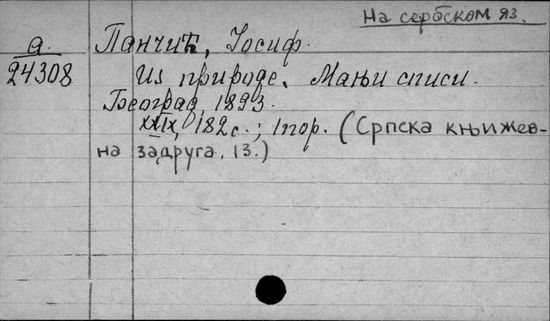 На сербском яз.
а. Панчић, Јосиф.
24308 Из природе. Мањи списи.
Београд, 1893.
XXIX, 182 с.; 1 пор. (Српска књижев-
на задруга. 13.)